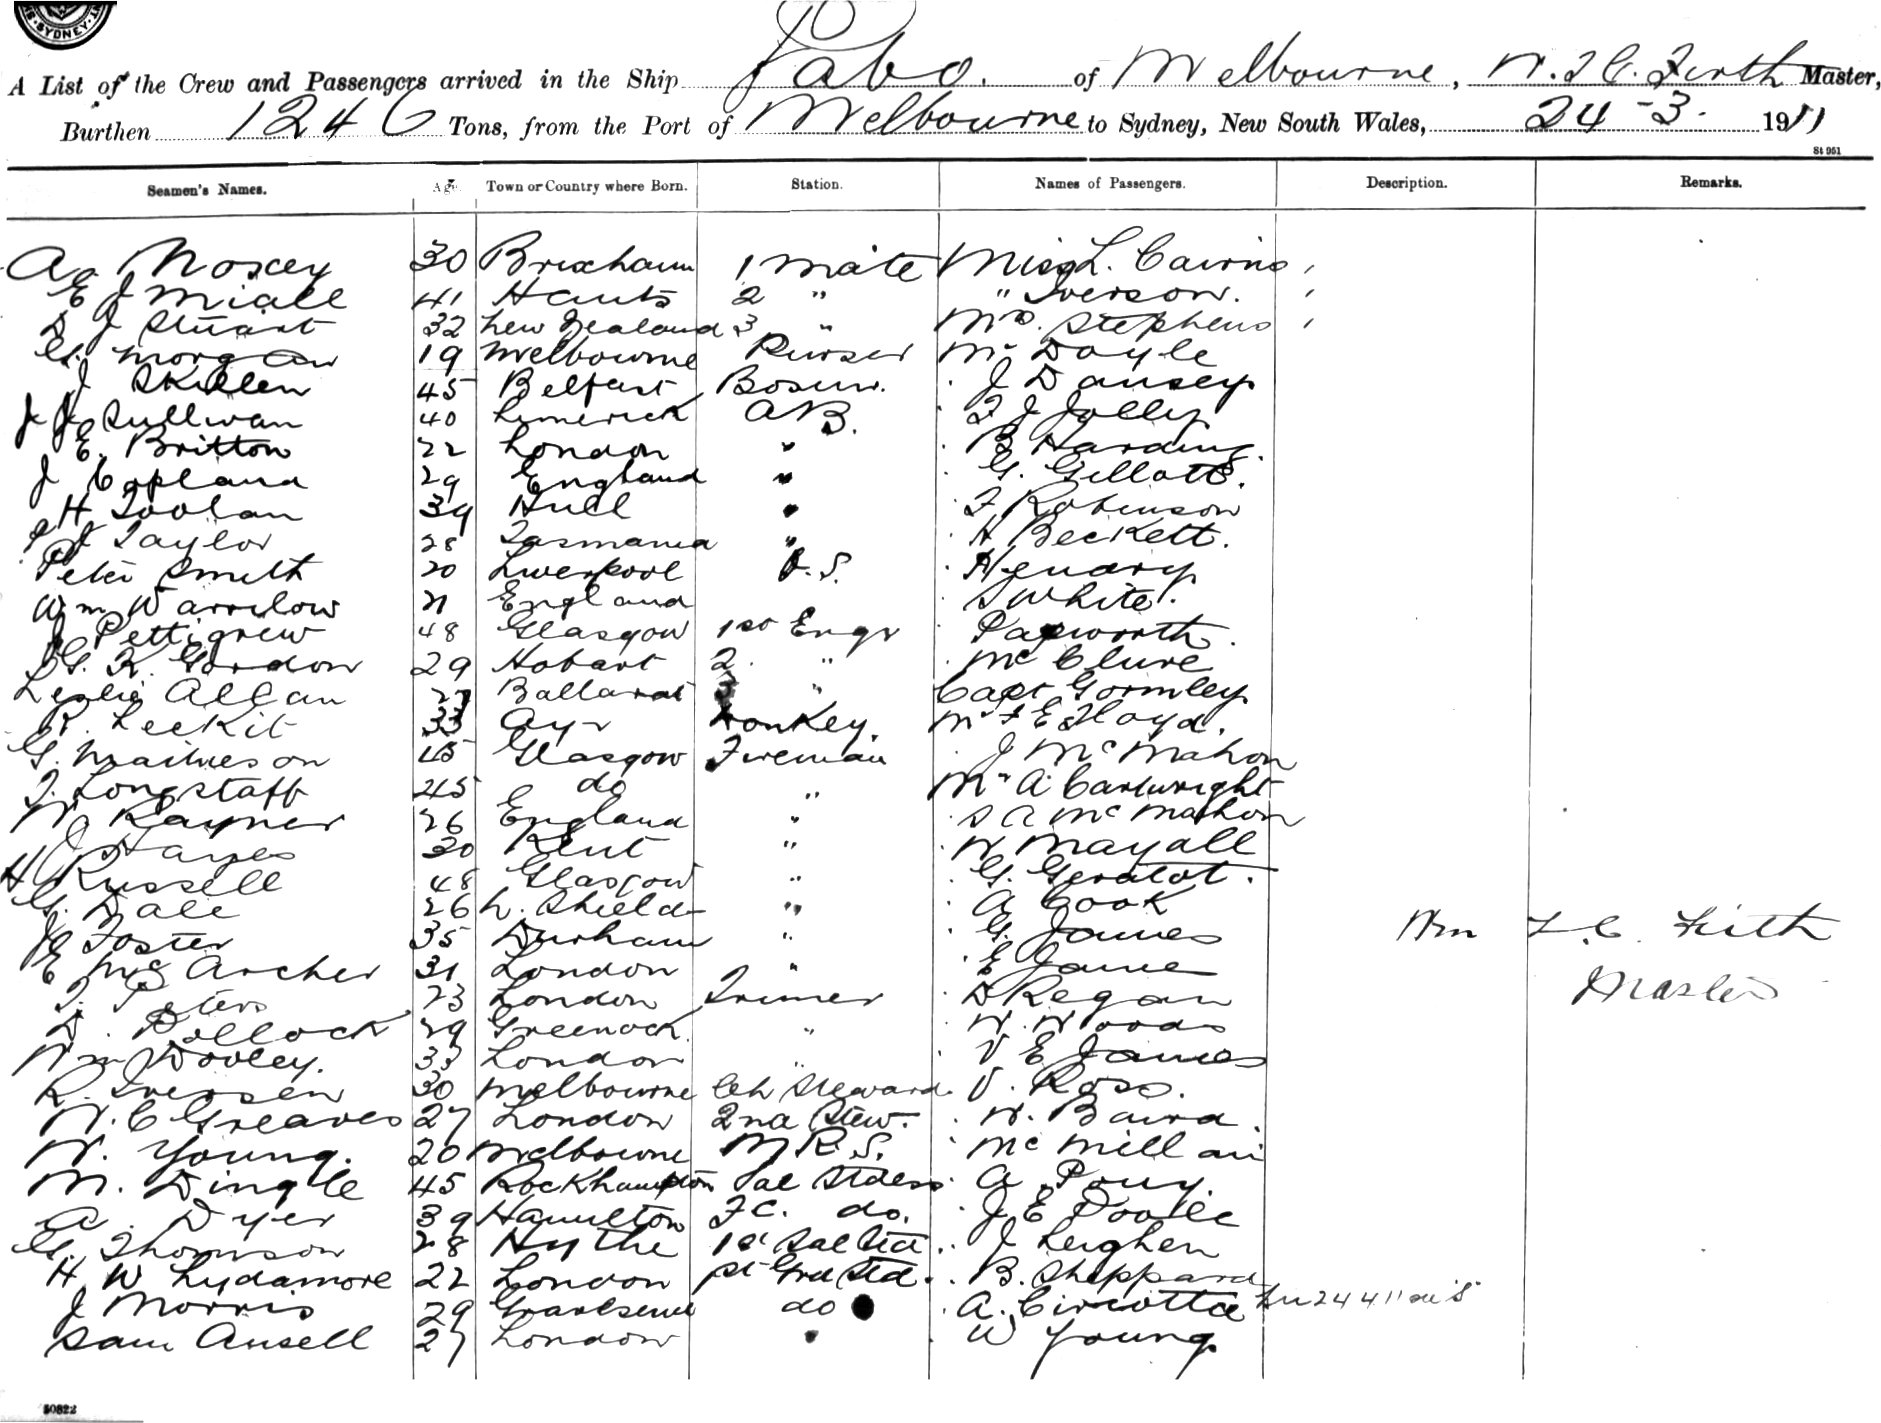 SYDNEY
A List of the Crew and Passengers arrived in the Ship Pabo. of Melbourne, W. F. C. Firth Master,
Burthen 1246 Tons, from the Port of Melbourne to Sydney, New South Wales, 24-3. 1911
St 951
Seamen's Names. Age Town or Country where Born. Station. Names of Passengers. Description. Remarks.
A. Noxey 30 Brixham 1 Mate Miss L. Cairns
E J Miall 41 Hants 2 " " Iverson.
D J Stuart 32 New Zealand 3 " Mrs. Stephens
G. Morgan 19 Melbourne Purser Mr Doyle
J Skillen 45 Belfast Bosun. J Dansey
J J Sullivan 40 Limerick AB. F J Jolley
E. Britton 22 London " B Harding.
J Copland 29 England " G. Gillott.
H Toolan 39 Hull " F Robinson
P J Taylor 28 Tasmania " H Beckett.
Peter Smith 20 Liverpool O.S. Hendry
Wm Warrilow 21 England S White.
J Pettigrew 48 Glasgow 1st Engr Papworth.
G. K. Gordon 29 Hobart 2. " McClure
Leslie Allan 27 Ballarat 3 " Capt Gormley
R. Leckit 33 Ayr Donkey. Mr F E Floyd.
G. Mathieson 45 Glasgow Fireman J McMahon
T. Longstaff 45 do " Mr A Cartwright
W Rayner 26 England " S A McMahon
J Hayes 30 Kent " W Mayall
H Russell 48 Glasgow " G. Geratot.
G. Dale 26 N. Shields " A Cook
J E Foster 35 Durham " G. James
E McArcher 31 London " E James
T. Peters 23 London Trimer D Regan
D. Pollock 29 Greenock " W. Woods
Wm Wooley. 33 London " V E James
R. Iversen 30 Melbourne Ch Steward V. Ross.
W. C Greaves 27 London 2nd Stew. W. Baird.
W. Young. 20 Melbourne M R S. McMillan
M. Dingle 45 Rockhampton Sal Stdess A Pouy.
A. Dyer 39 Hamilton F C. do. J E Poole
G. Thomson 28 Hythe 1st Sal Std. J Leighen
H W Lydamore 22 London Std. B. Sheppard
J Morris 29 Gravesend do A. Circotta
Sam Ansell 27 London " W Young
Wm F. C. Firth
Master
50822